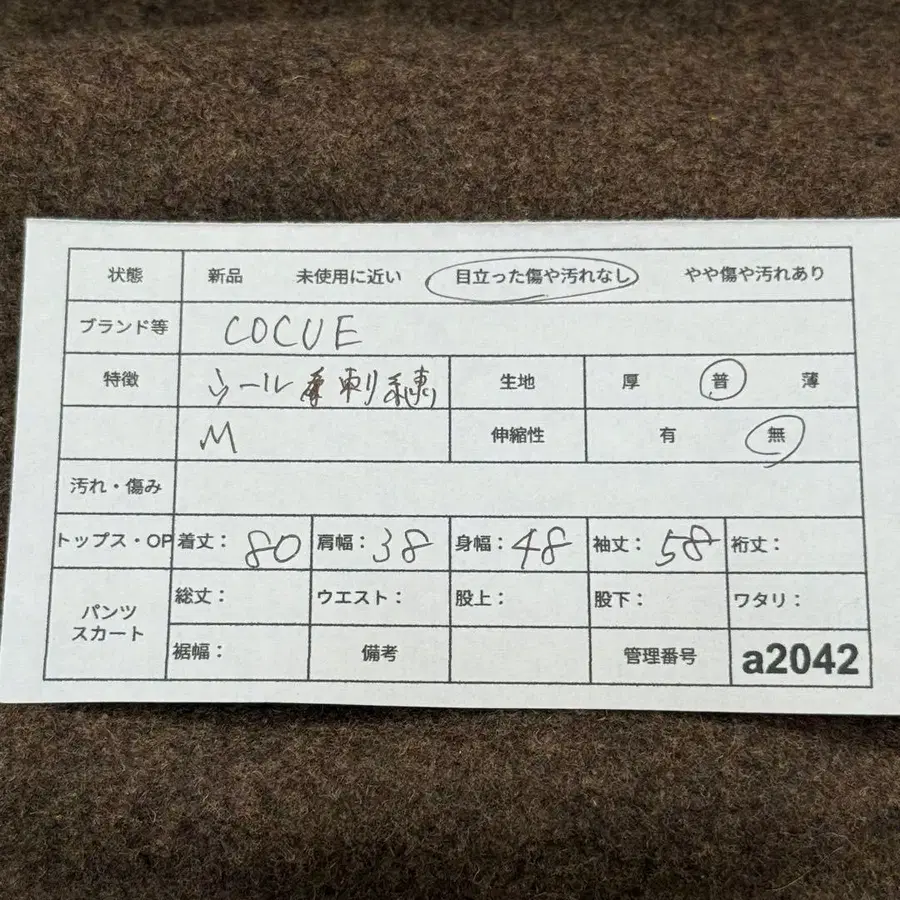 状態 新品 未使用に近い 目立った傷や汚れなし やや傷や汚れあり
ブランド等 COCUE
特徴 ウール 刺繍 生地 厚 普 薄
M 伸縮性 有 無
汚れ・傷み
トップス・OP 着丈：80 肩幅：38 身幅：48 袖丈：58 裄丈：
パンツ スカート 総丈： ウエスト： 股上： 股下： ワタリ：
裾幅： 備考 管理番号 a2042